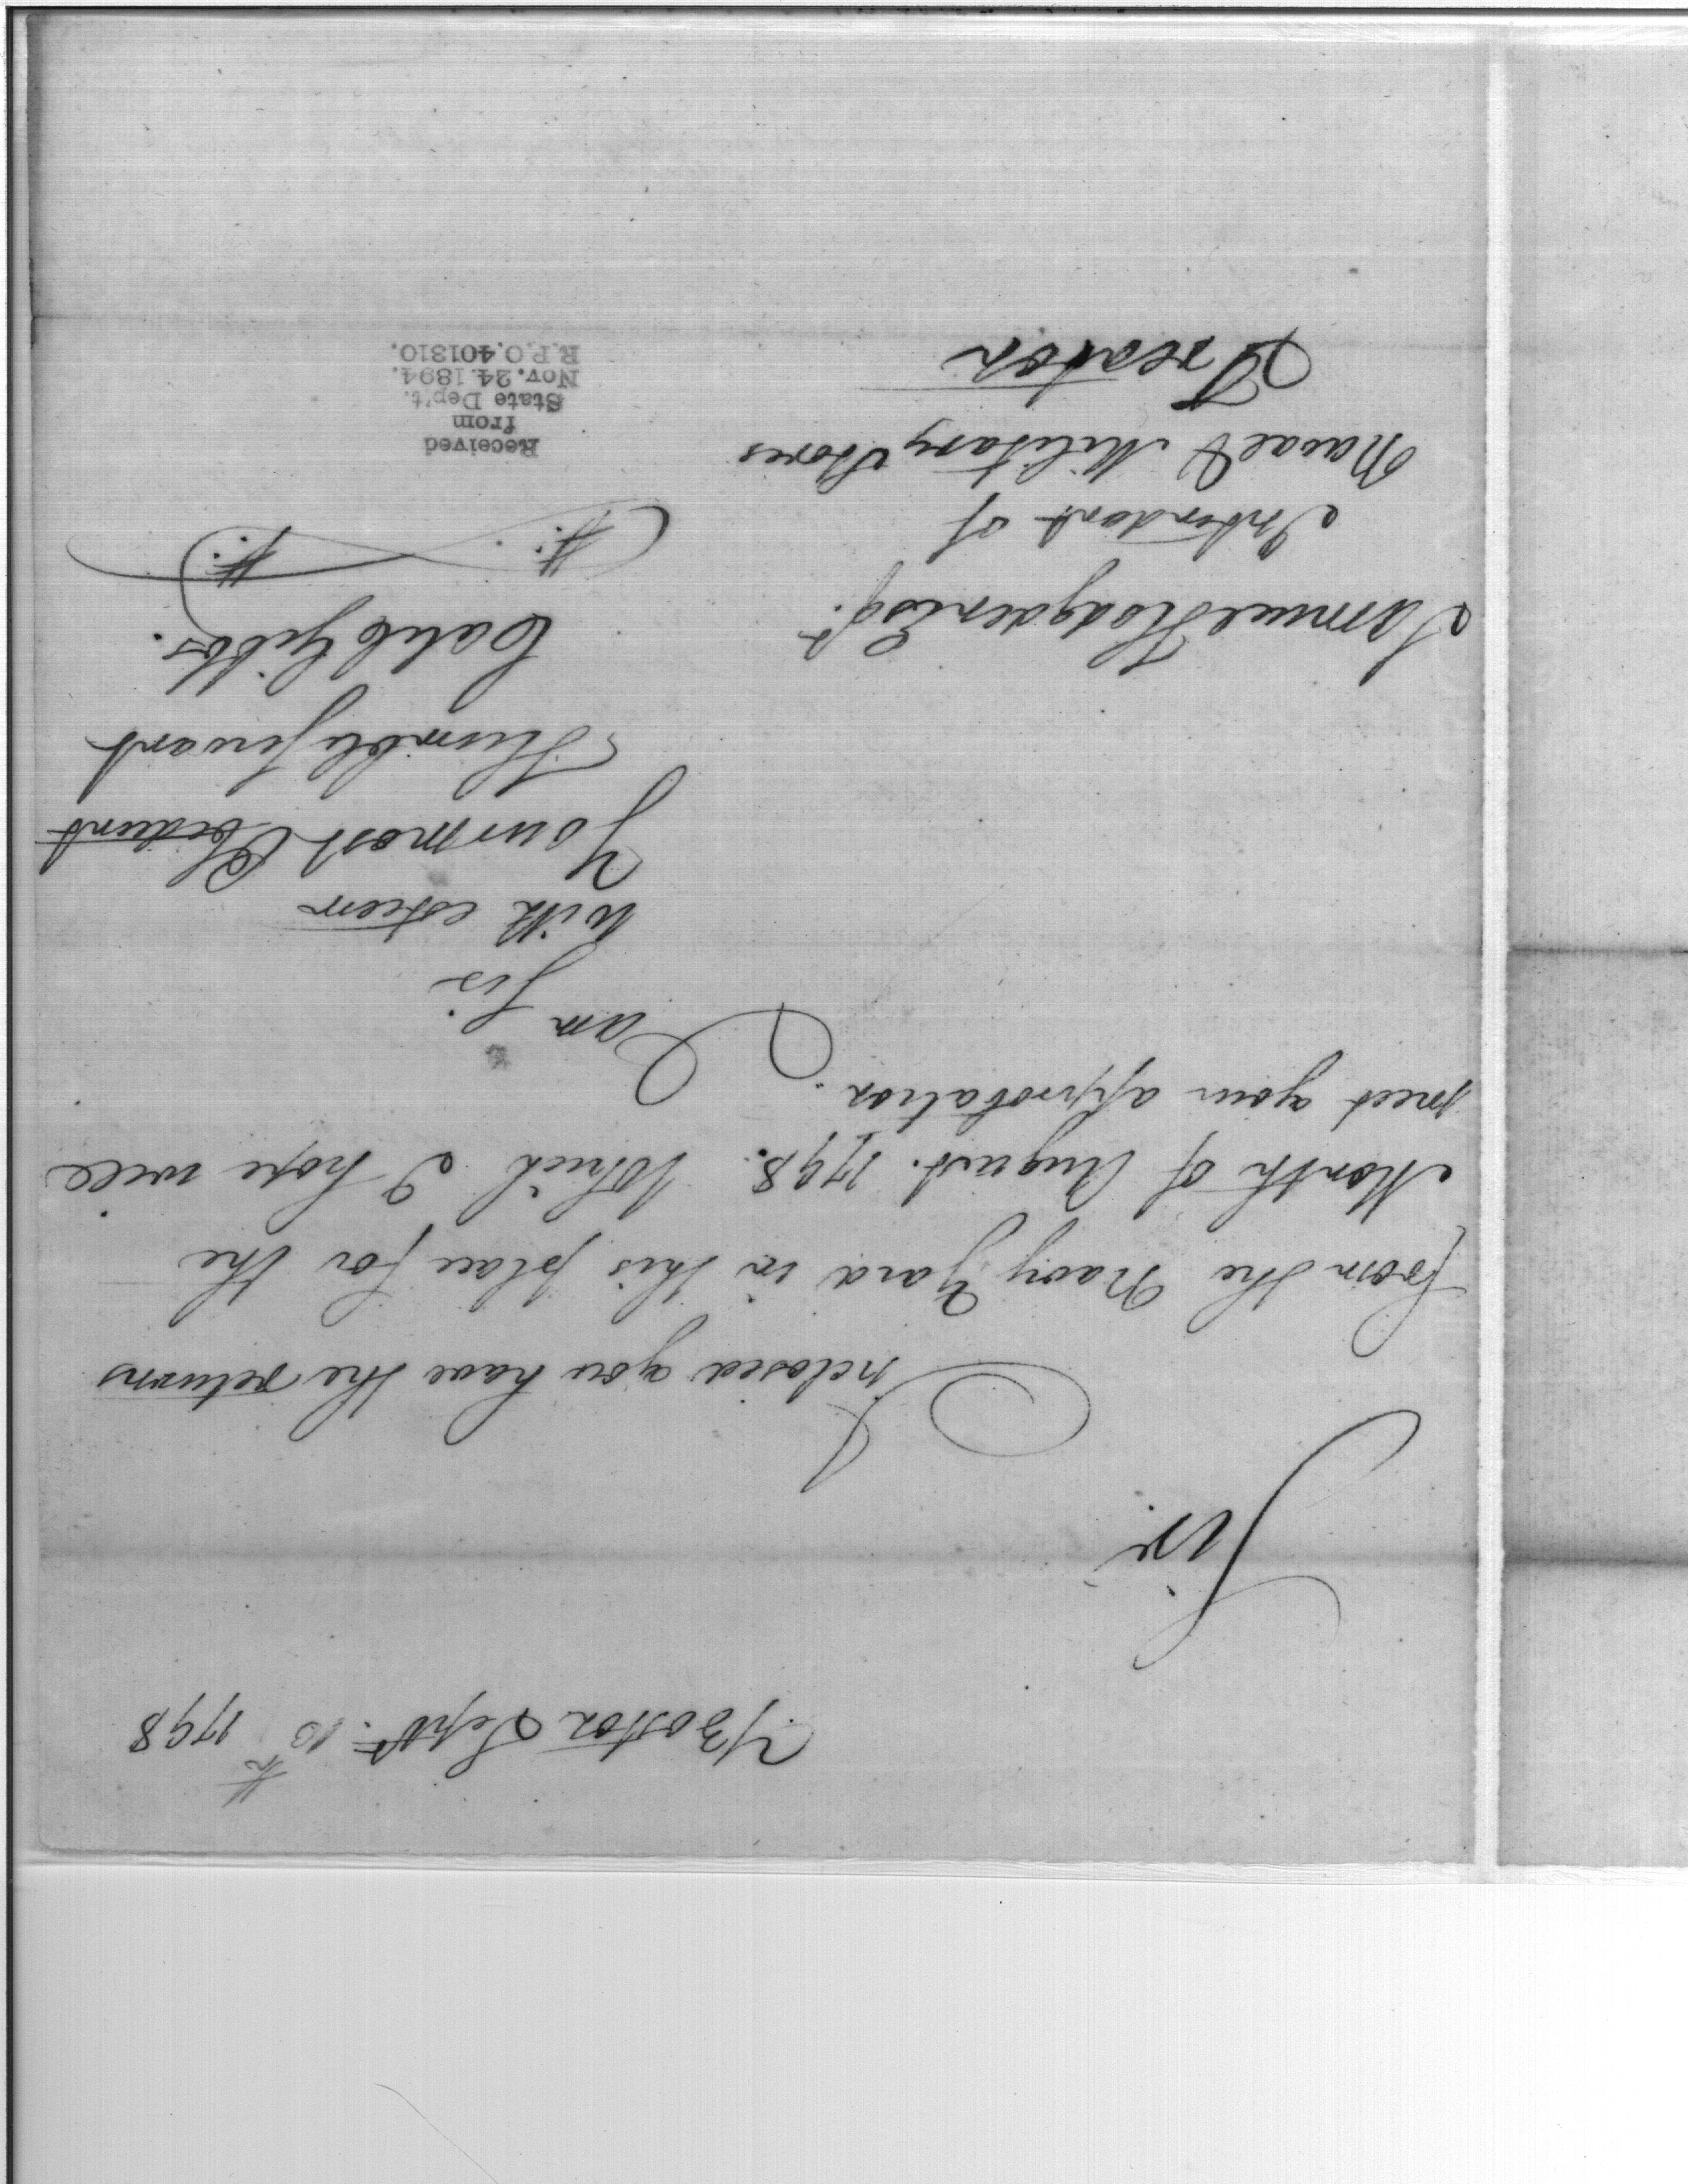 Boston Septr. 10th 1798
Sir.
Inclosed you have the returns
from the Navy Yard in this place for the
Month of August. 1798. Which I hope will
meet your approbation.
I am Sir
with esteem
Your most Obedient
Humble Servant
Caleb Gibbs.
Samuel Hodgden Esqr.
Intendant of
Naval & Military Stores
Trenton
Received
from
State Dep't.
Nov. 24. 1894.
R.P.O. 401310.